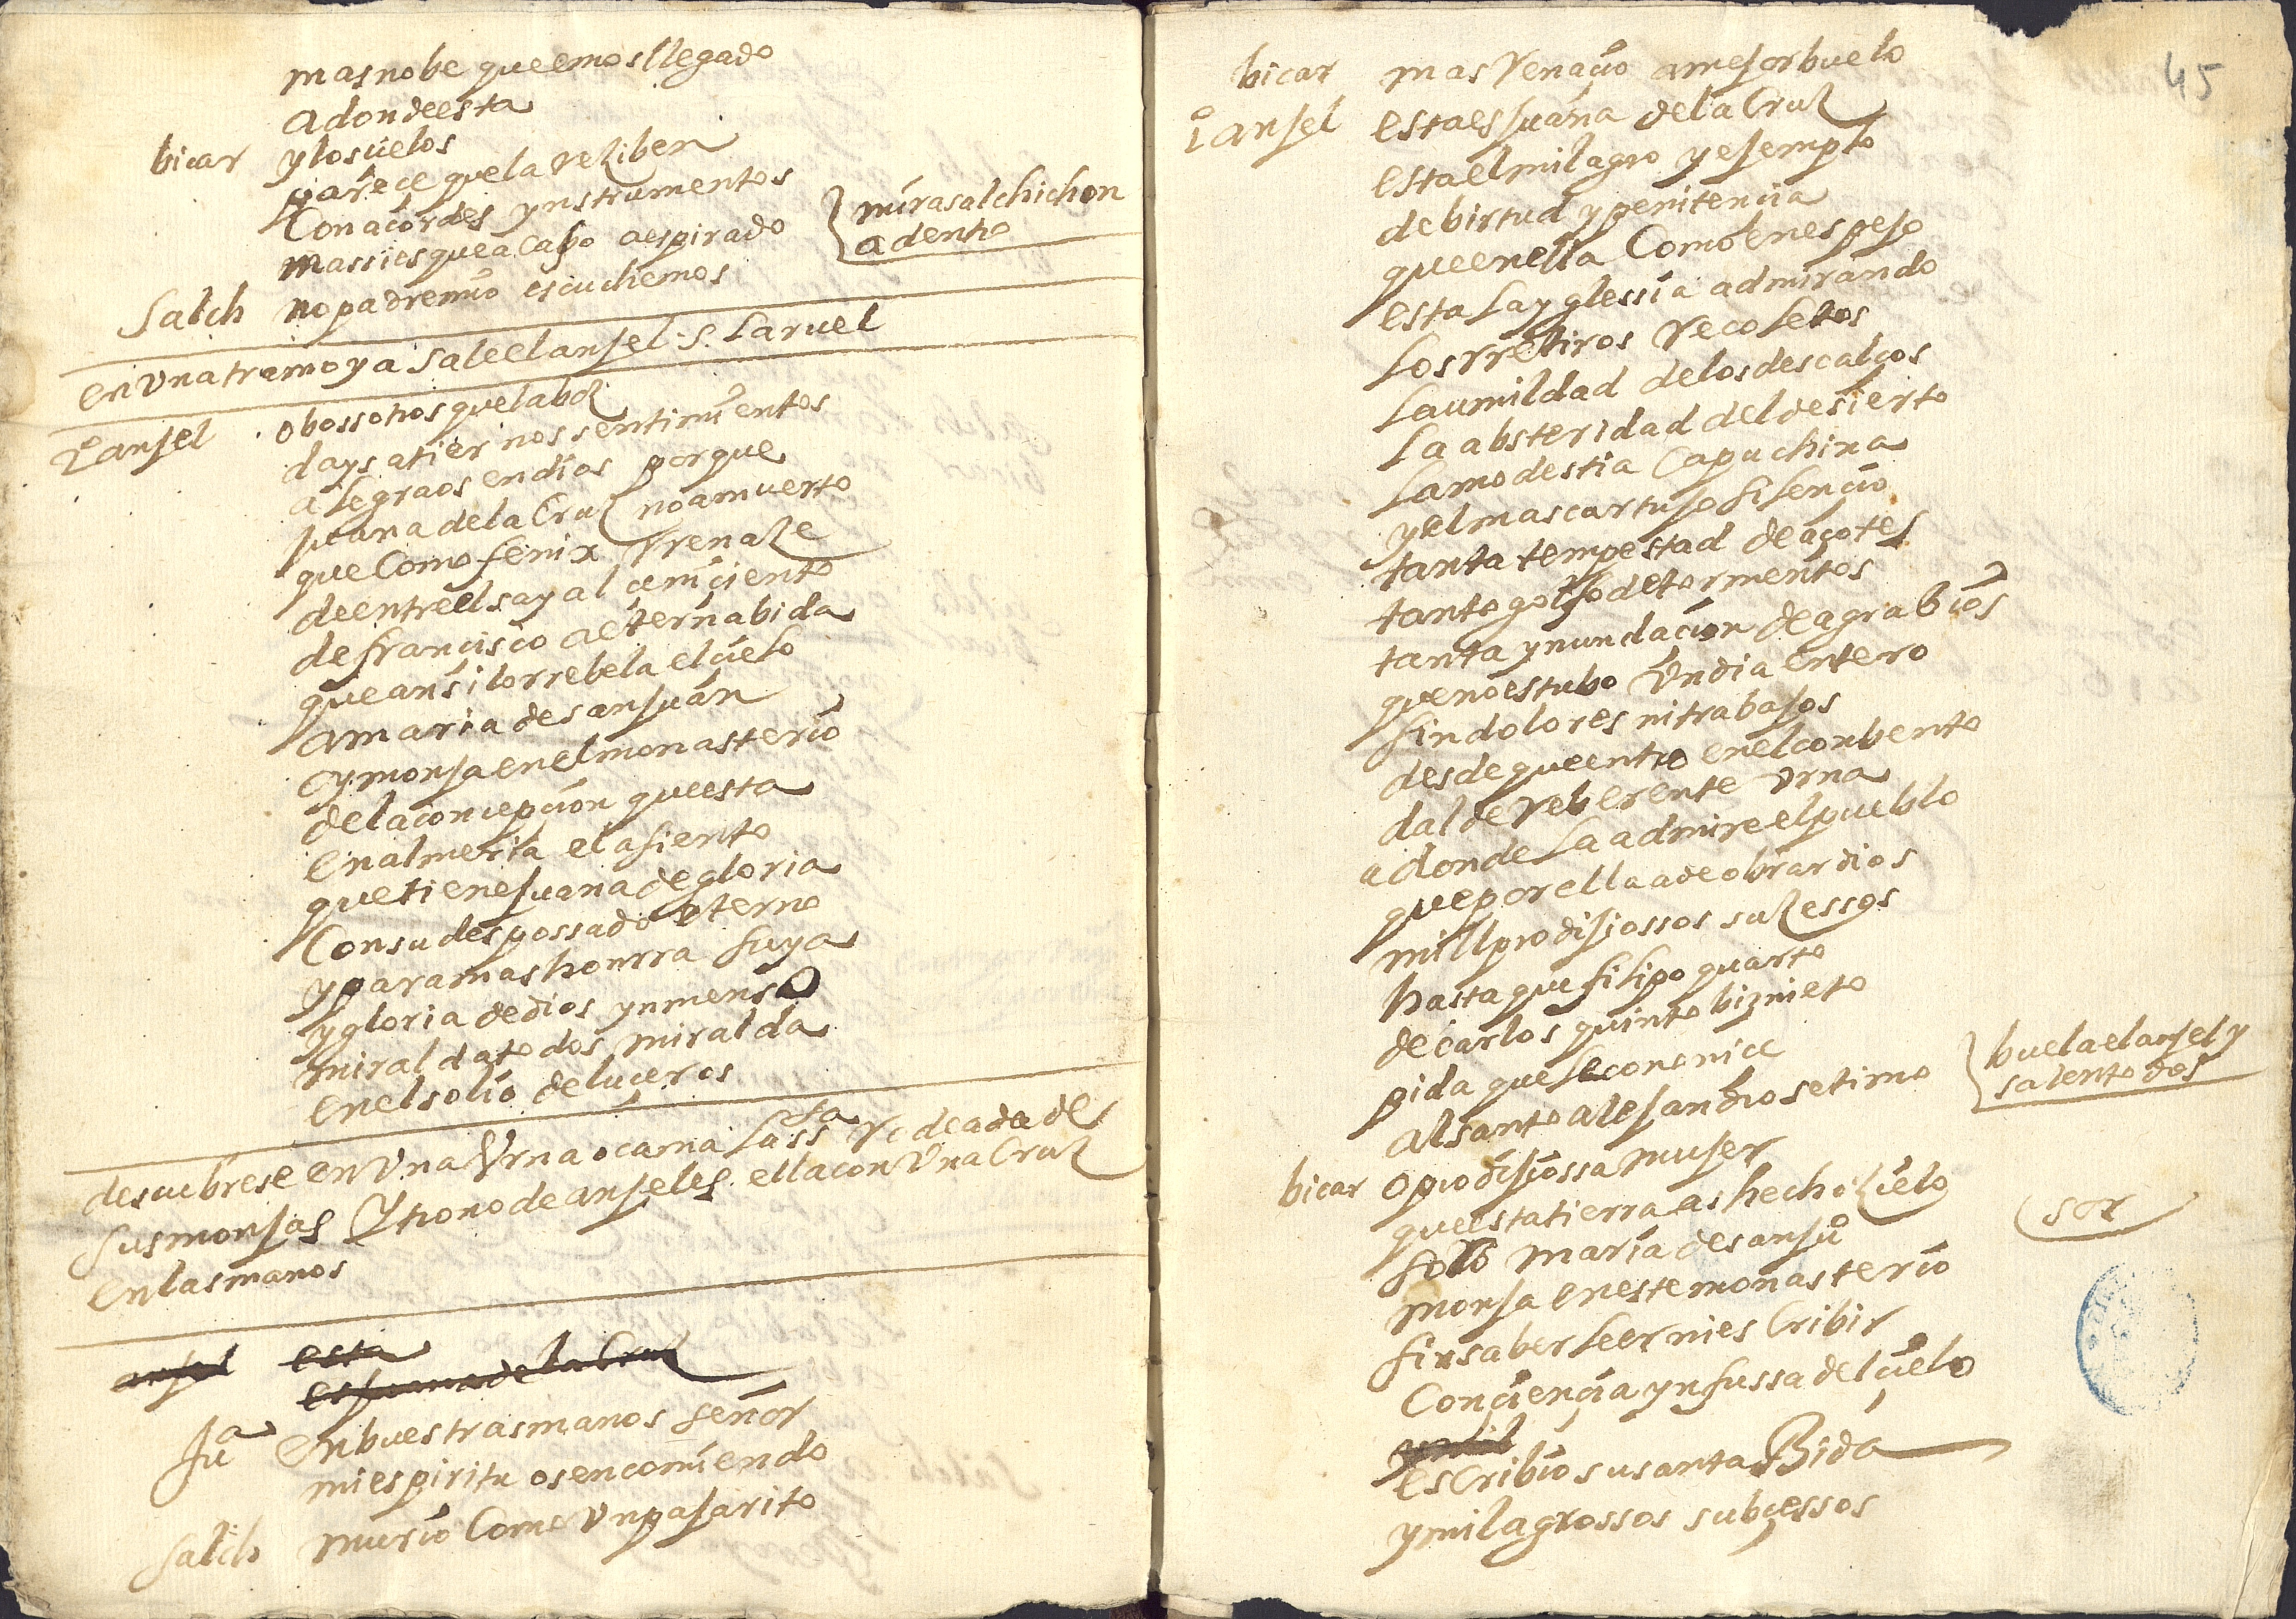 mas no be que emos llegado
adonde esta
bicar y los cielos
pareçe que la reziben
Con acordes ynstrumentos
mas si es que acaso a espirado
mira salchichon
adentro
Salch no padre mio escuchemos
en Una tramoya sale el anjel S. Laruel
1º anjel o bossotros que la boz
days a tiernos sentimientos
alegraos en dios porque
juana de la Cruz no a muerto
que Como fenix rrenaze
de entre el sayal çeniçiento
de francisco a eterna bida
que ansi lo rrebela el cielo
a maria de san juan
oy monja en el monasterio
de la concepcion que esta
en almeria el asiento
que tiene juana de gloria
Con su desposado eterno
y para mas honrra suya
y gloria de dios ynmenso
miralda todos miralda
en el solio de luçeros
descubrese en Una Urna o cama la ssta rodeada de
sus monjas Y trono de anjeles ella con Una Cruz
en las manos
anjel esta
es juana de la Cruz
Jua en buestras manos señor
mi espiritu os encomiendo
salch murio Como Un pajarito
45
bicar mas renaçio a mejor buelo
1º anjel esta es juana de la Cruz
esta el milagro y ejemplo
de birtud y penitencia
que en ella Como en espejo
esta la yglessia admirando
los rretiros recoletos
la umildad de los descalços
la absteridad del desierto
la modestia Capuchina
y el mas cartujo silencio
tanta tempestad de açotes
tanto golfo de tormentos
tanta ynundacion de agrabios
que no estubo Un dia entero
sin dolores ni trabajos
desde que entro en el conbento
dalde reberente Urna
adonde la admire el pueblo
que por ella a de obrar dios
mill prodijiossos suzessos
hasta que filipo quarto
de carlos quinto biznieto
pida que se cononice
al santo alejandro setimo
buela el anjel y
salen todos
bicar o prodijiossa mujer
que esta tierra as hecho zielo
solo maria de san juº
sor
monja en este monasterio
sin saber leer ni esCribir
Con ciencia ynfussa del cielo
esCribio su santa Bida
y milagrossos subçessos